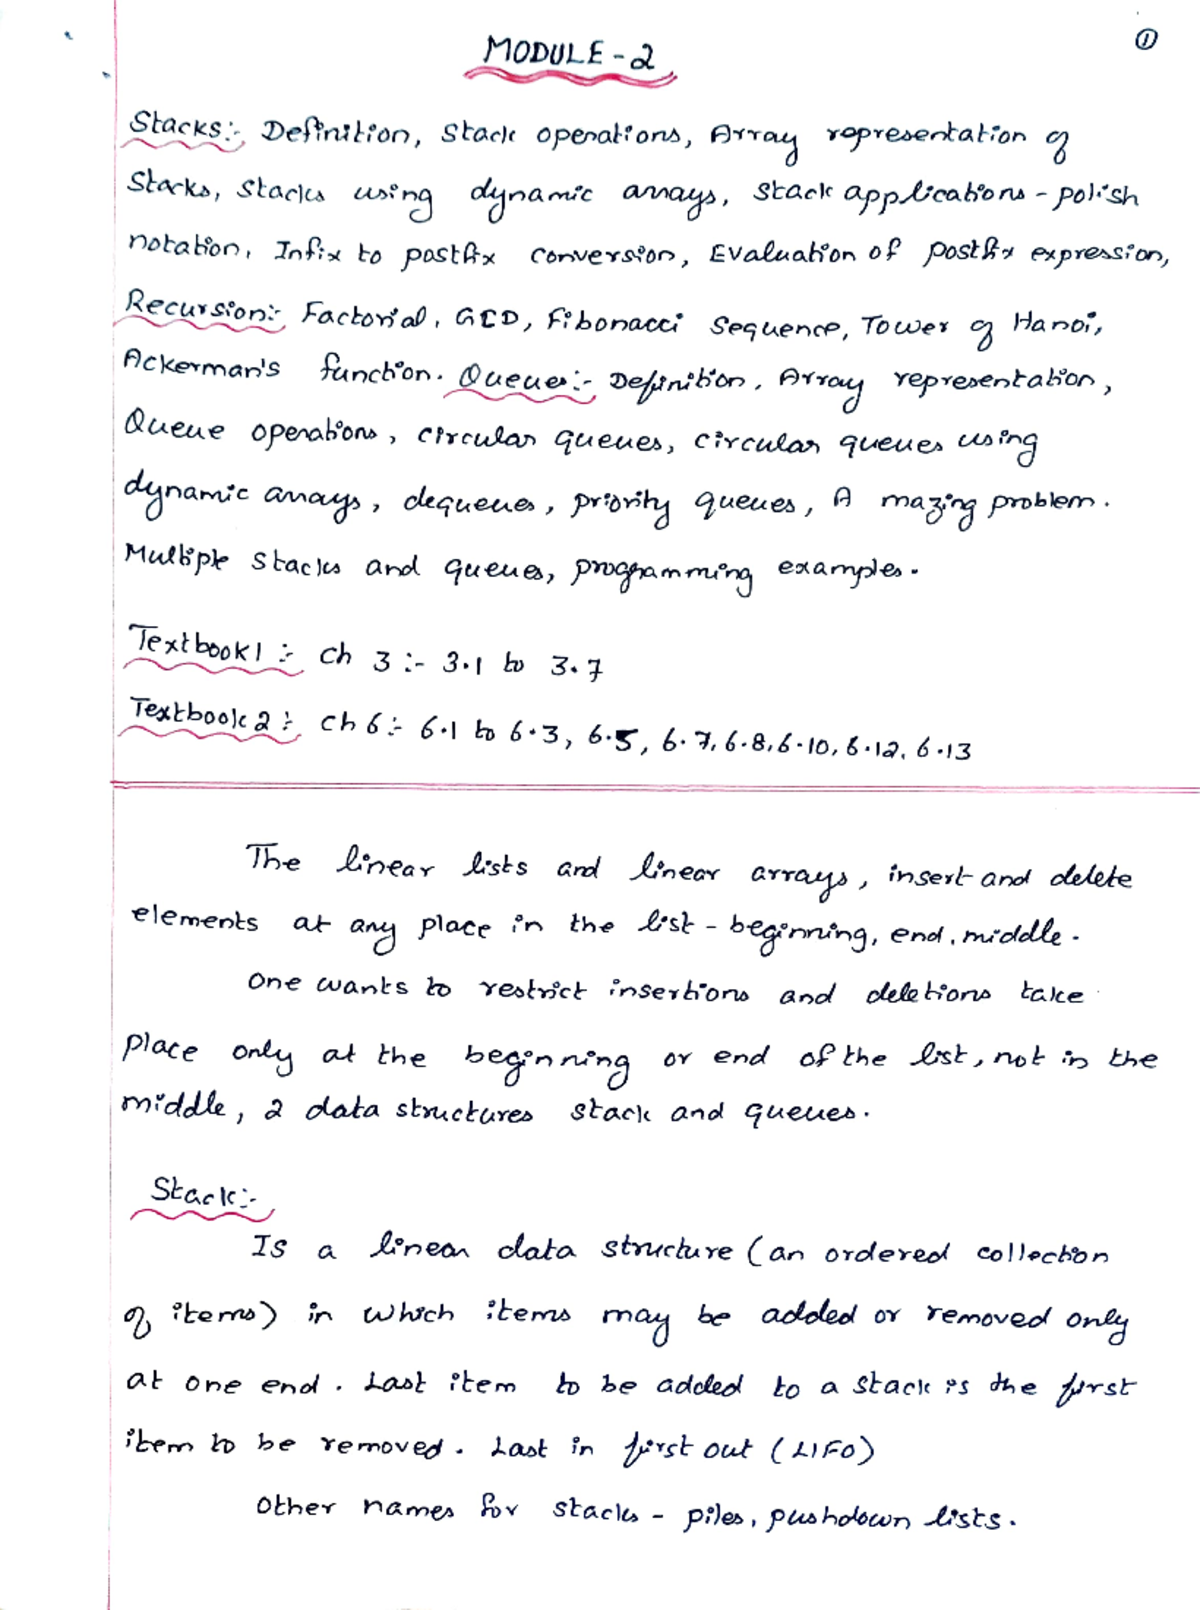 ①
MODULE - 2
Stacks:- Definition, Stack operations, Array representation of
Stacks, Stacks using dynamic arrays, Stack applications - polish
notation, Infix to postfix conversion, Evaluation of postfix expression,
Recursion:- Factorial, GCD, Fibonacci Sequence, Tower of Hanoi,
Ackerman's function. Queues:- Definition, Array representation,
Queue operations, circular queues, circular queues using
dynamic arrays, dequeues, priority queues, A mazing problem.
Multiple stacks and queues, programming examples.
Textbook 1 :- Ch 3 :- 3.1 to 3.7
Textbook 2 :- Ch 6 :- 6.1 to 6.3, 6.5, 6.7, 6.8, 6.10, 6.12, 6.13
The linear lists and linear arrays, insert and delete
elements at any place in the list - beginning, end, middle.
One wants to restrict insertions and deletions take
place only at the beginning or end of the list, not in the
middle, 2 data structures stack and queues.
Stack:-
Is a linear data structure (an ordered collection
of items) in which items may be added or removed only
at one end. Last item to be added to a stack is the first
item to be removed. Last in first out (LIFO)
Other names for stacks - piles, pushdown lists.